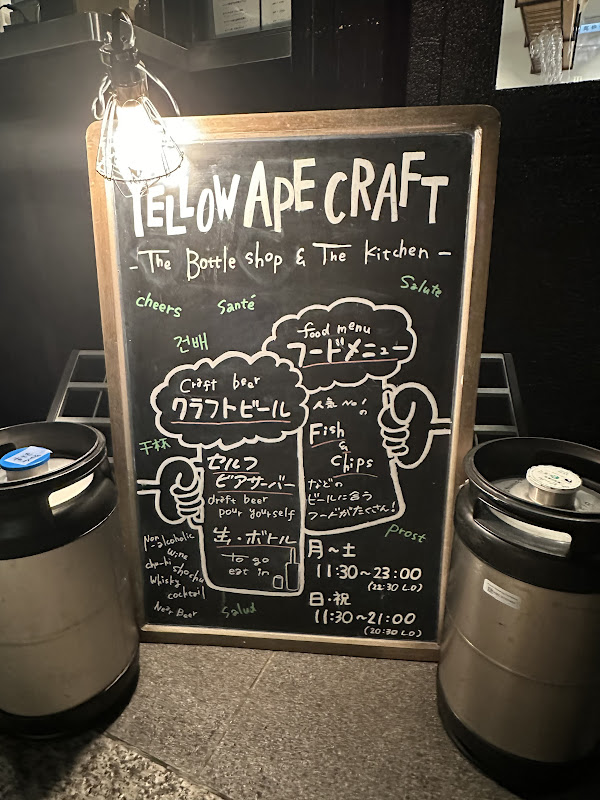 YELLOW APE CRAFT
- The Bottle shop & The Kitchen -
cheers
Santé
Salute
건배
food menu
フードメニュー
Craft beer
クラフトビール
人気No.1の
Fish
&
chips
などの
ビールに合う
フードがたくさん!
干杯
セルフ
ビアサーバー
draft beer
pour yourself
生・ボトル
To go
eat in
Prost
Non-alcoholic
wine
chu-hi
shochu
Whisky
cocktail
Salud
月~土
11:30~23:00
(22:30 L.O)
日・祝
11:30~21:00
(20:30 L.O)